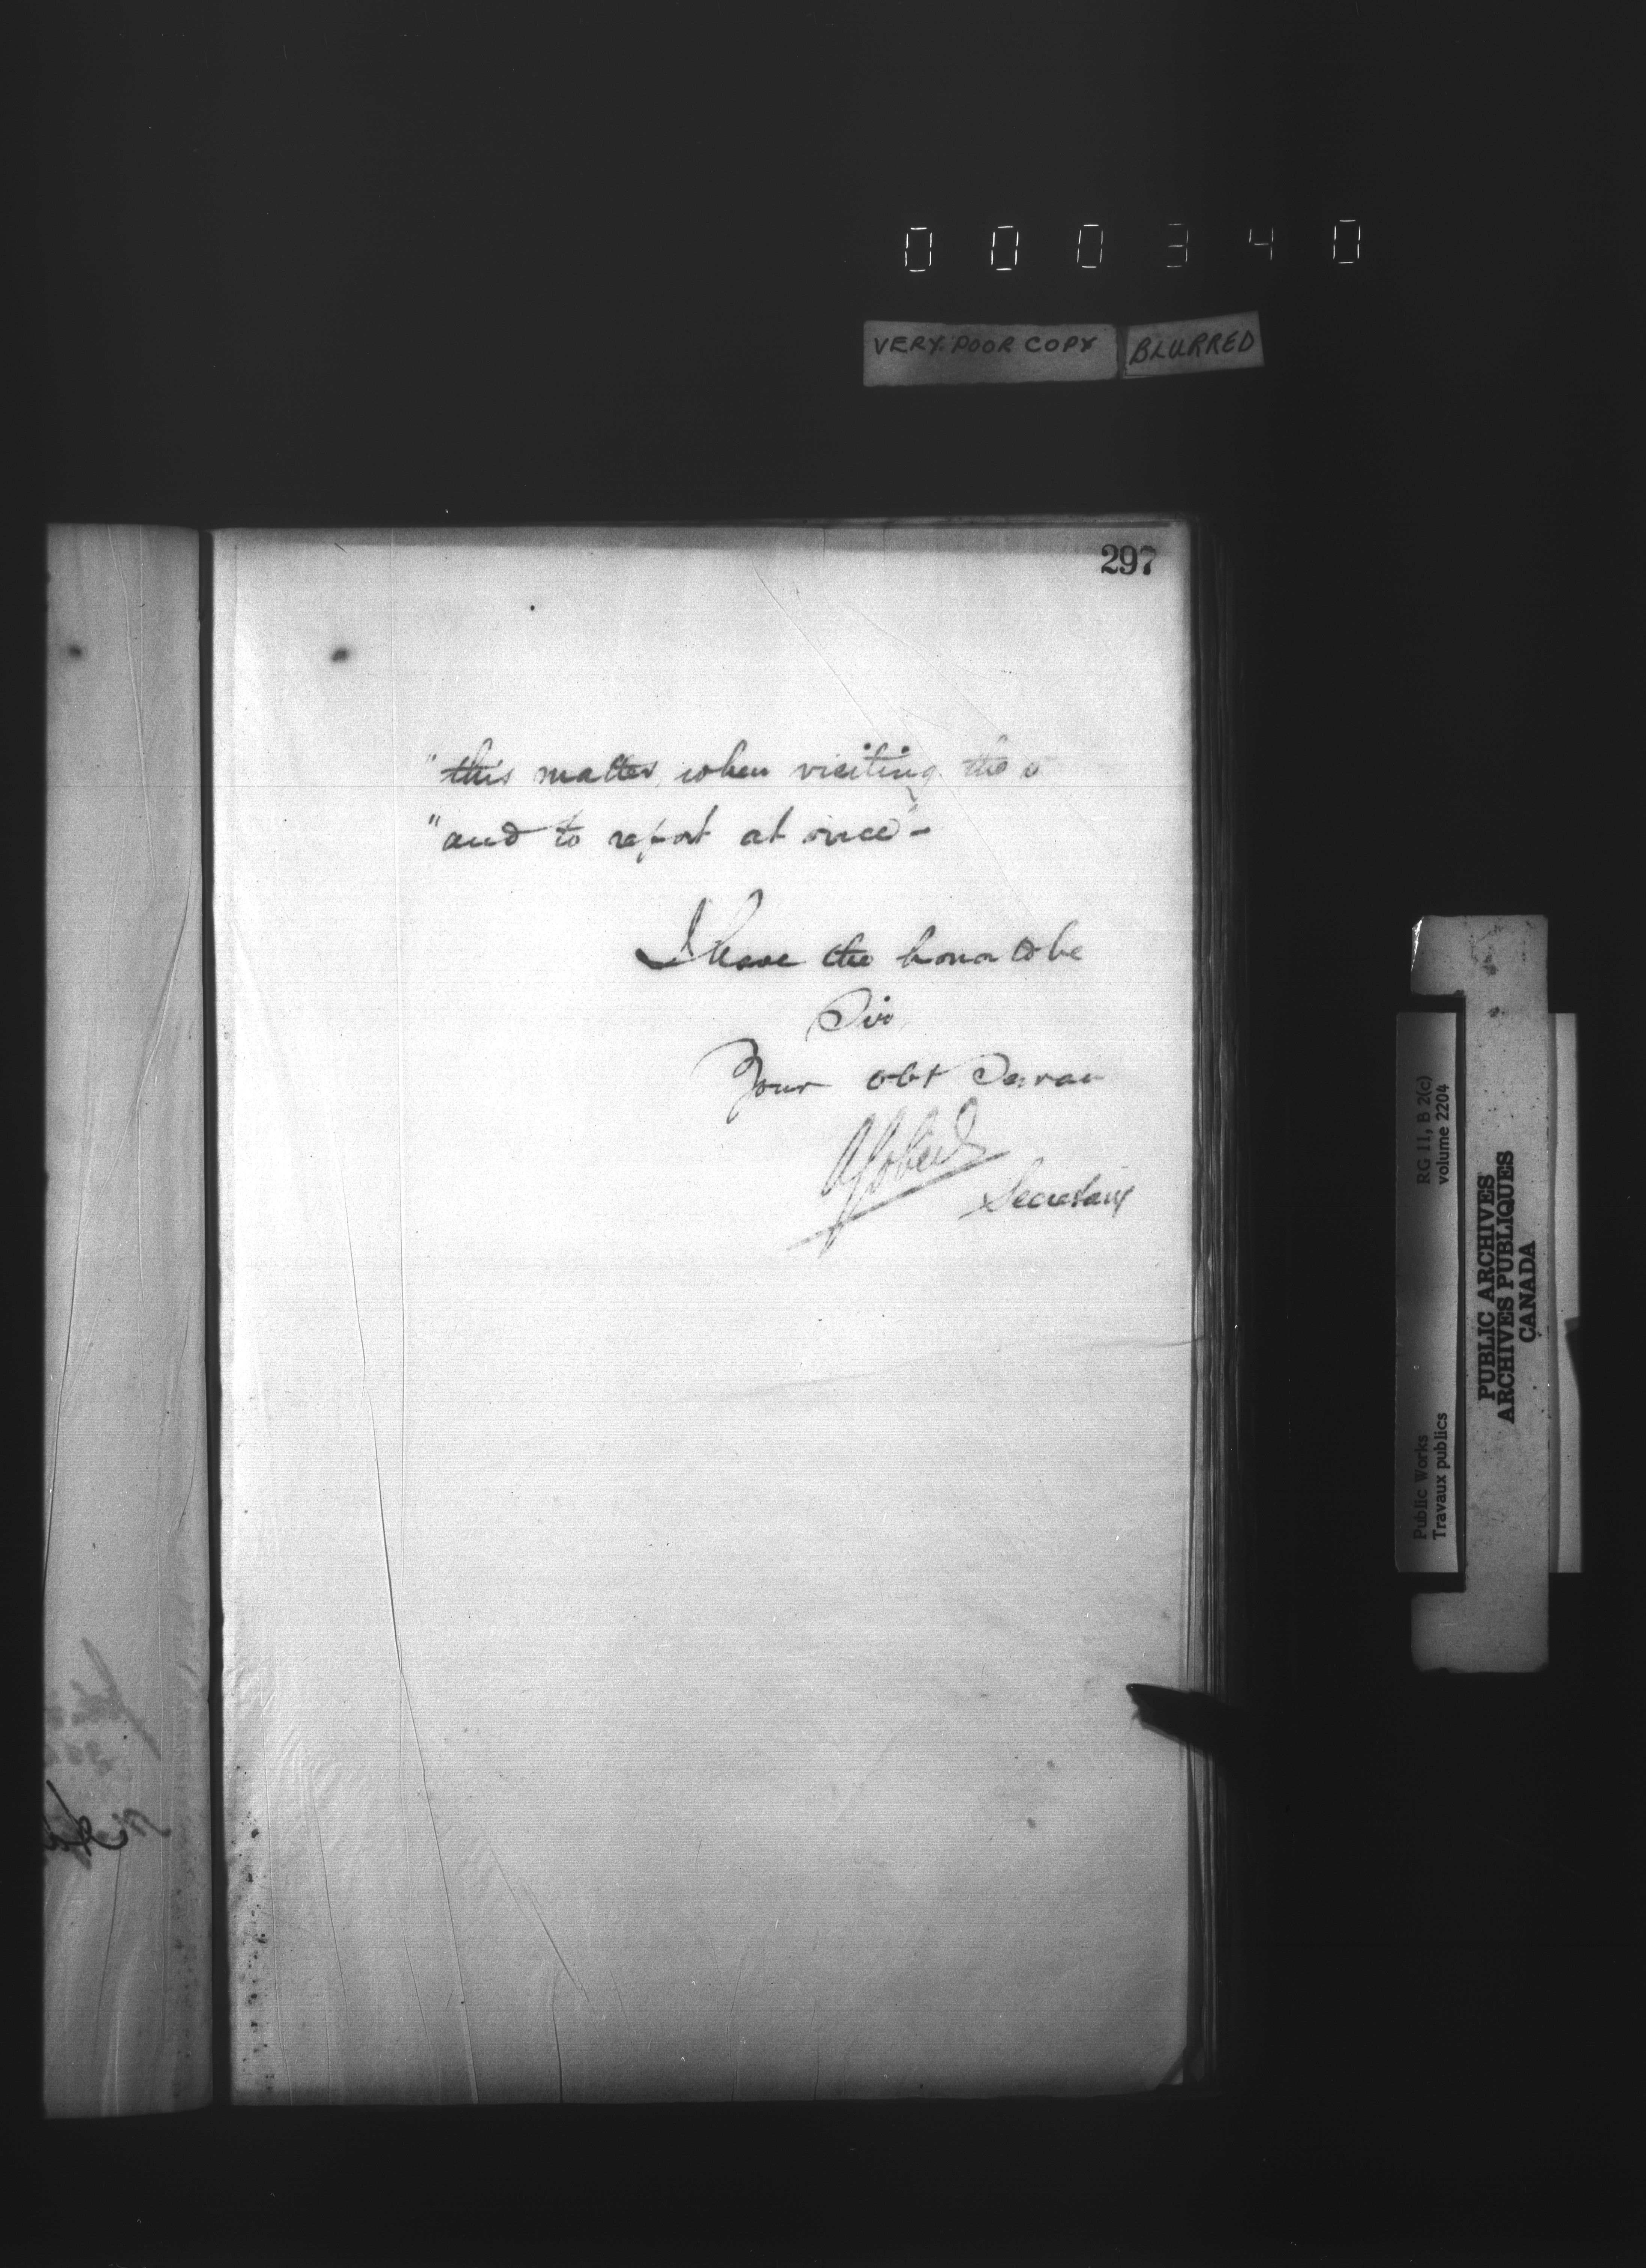 000340
VERY POOR COPY BLURRED
297
"this matter, when visiting the
"and to report at once"-
I have the honor to be
Sir,
Your obt Servan
Secretary
Public Works RG 11, B 2(c)
Travaux publics volume 2204
PUBLIC ARCHIVES
ARCHIVES PUBLIQUES
CANADA